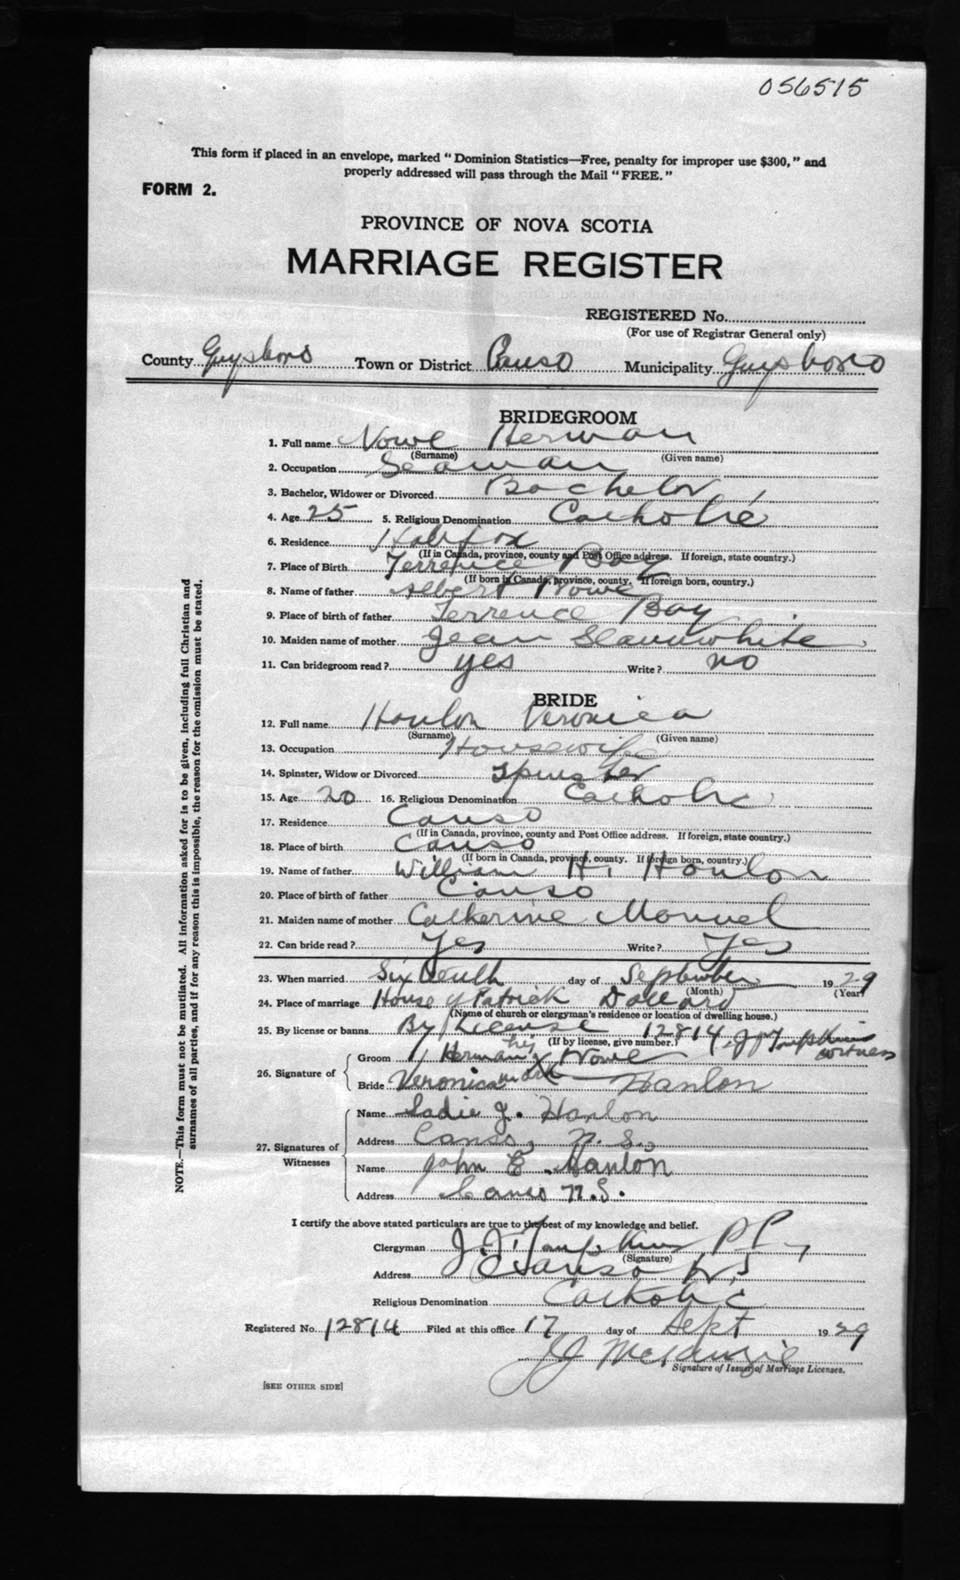 056515
This form if placed in an envelope, marked "Dominion Statistics—Free, penalty for improper use $300," and
properly addressed will pass through the Mail "FREE."
FORM 2.
PROVINCE OF NOVA SCOTIA
MARRIAGE REGISTER
REGISTERED No.
(For use of Registrar General only)
County Guysboro Town or District Canso Municipality Guysboro
BRIDEGROOM
1. Full name Nowe Herman
(Surname) (Given name)
2. Occupation Seaman
3. Bachelor, Widower or Divorced Bachelor
4. Age 25 5. Religious Denomination Catholic
6. Residence Halifax
(If in Canada, province, county and Post Office address. If foreign, state country.)
7. Place of Birth Terrence Bay
(If born in Canada, province, county. If foreign born, country.)
8. Name of father Albert Nowe
9. Place of birth of father Terrence Bay
10. Maiden name of mother Jean Slaunwhite
11. Can bridegroom read? yes Write? no
BRIDE
12. Full name Hanlon Veronica
(Surname) (Given name)
13. Occupation Housewife
14. Spinster, Widow or Divorced Spinster
15. Age 20 16. Religious Denomination Catholic
17. Residence Canso
(If in Canada, province, county and Post Office address. If foreign, state country.)
18. Place of birth Canso
(If born in Canada, province, county. If foreign born, country.)
19. Name of father William H. Hanlon
20. Place of birth of father Canso
21. Maiden name of mother Catherine Manuel
22. Can bride read? Yes Write? Yes
23. When married Sixteenth day of September 1929
(Month) (Year)
24. Place of marriage House of Patrick Dollard
(Name of church or clergyman's residence or location of dwelling house.)
25. By license or banns By License 12814 J J Tompkins
(If by license, give number.) witness
26. Signature of
Groom Herman his X Nowe
mark
Bride Veronica Hanlon
27. Signatures of Witnesses
Name Sadie J. Hanlon
Address Canso, N.S.
Name John E. Hanlon
Address Canso N.S.
I certify the above stated particulars are true to the best of my knowledge and belief.
Clergyman J. J. Tompkins P.P.
(Signature)
Address Canso N S
Religious Denomination Catholic
Registered No. 12814 Filed at this office 17 day of Sept 1929
J J McKenzie
Signature of Issuer of Marriage Licenses.
[SEE OTHER SIDE]
NOTE.—This form must not be mutilated. All information asked for is to be given, including full Christian and
surnames of all parties, and if for any reason this is impossible, the reason for the omission must be stated.